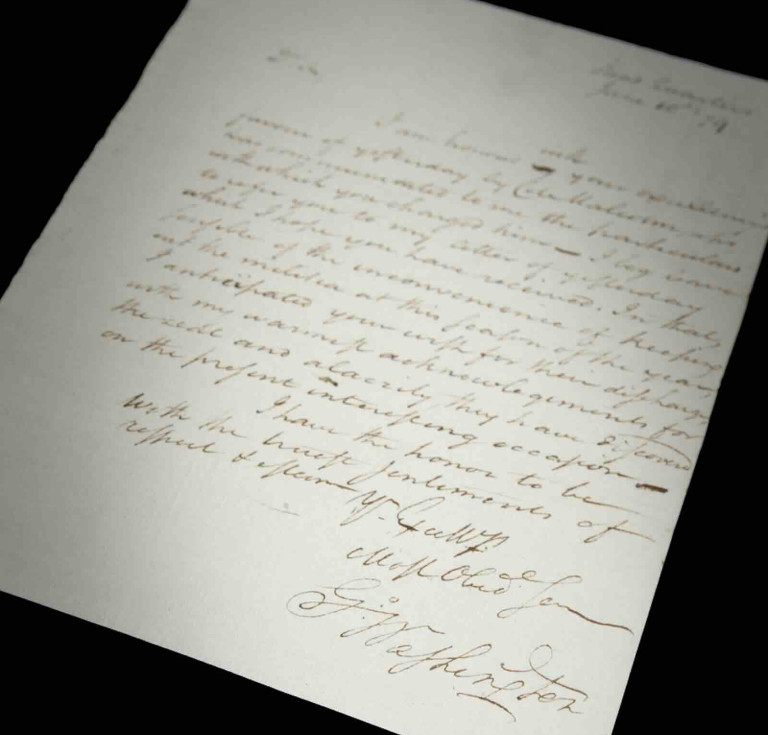 Sir
Head Quarters
June 10th 79
I am honored with your excellency's
favour of yesterday by Col. Malcolm who
has communicated to me the particulars
with which you charged him — I beg leave
to refer you to my letter of yesterday
which I hope you have received. In that,
sensible of the inconvenience of keeping
out the militia at this season of the year,
I anticipated your wish for their discharge
with my warmest acknowlegements for
the zeal and alacrity they have discovered
on the present interesting occasion —
I have the honor to be
with the truest sentiments of
respect & esteem
Yr. Excellys
Most Obed Ser
Go: Washington